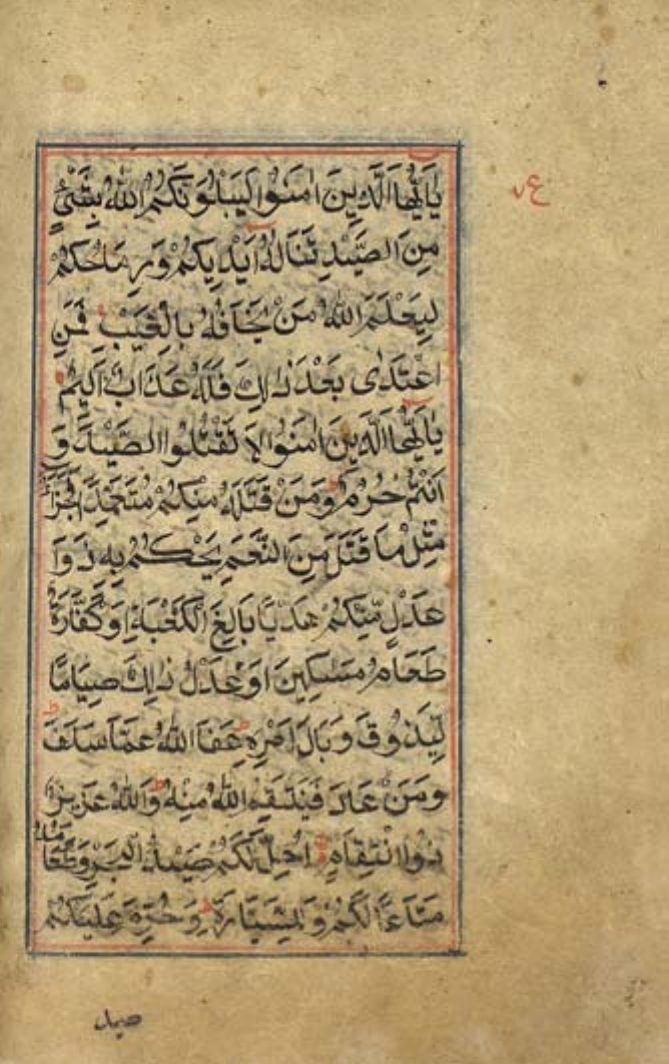 يٰاَيُّهَا الَّذِينَ اٰمَنُوا لَيَبْلُوَنَّكُمُ اللّٰهُ بِشَيْءٍ
مِنَ الصَّيْدِ تَنَالُهُ اَيْدِيكُمْ وَرِمَاحُكُمْ
لِيَعْلَمَ اللّٰهُ مَنْ يَخَافُهُ بِالْغَيْبِ فَمَنِ
اعْتَدٰى بَعْدَ ذٰلِكَ فَلَهُ عَذَابٌ اَلِيمٌ
يٰاَيُّهَا الَّذِينَ اٰمَنُوا لَا تَقْتُلُوا الصَّيْدَ وَ
اَنْتُمْ حُرُمٌ وَمَنْ قَتَلَهُ مِنْكُمْ مُتَعَمِّدًا فَجَزَاءٌ
مِثْلُ مَا قَتَلَ مِنَ النَّعَمِ يَحْكُمُ بِهِ ذَوَا
عَدْلٍ مِنْكُمْ هَدْيًا بَالِغَ الْكَعْبَةِ اَوْ كَفَّارَةٌ
طَعَامُ مَسٰكِينَ اَوْ عَدْلُ ذٰلِكَ صِيَامًا
لِيَذُوقَ وَبَالَ اَمْرِهِ عَفَا اللّٰهُ عَمَّا سَلَفَ
وَمَنْ عَادَ فَيَنْتَقِمُ اللّٰهُ مِنْهُ وَاللّٰهُ عَزِيزٌ
ذُوا انْتِقَامٍ اُحِلَّ لَكُمْ صَيْدُ الْبَحْرِ وَطَعَامُهُ
مَتَاعًا لَكُمْ وَلِلسَّيَّارَةِ وَحُرِّمَ عَلَيْكُمْ
صيد